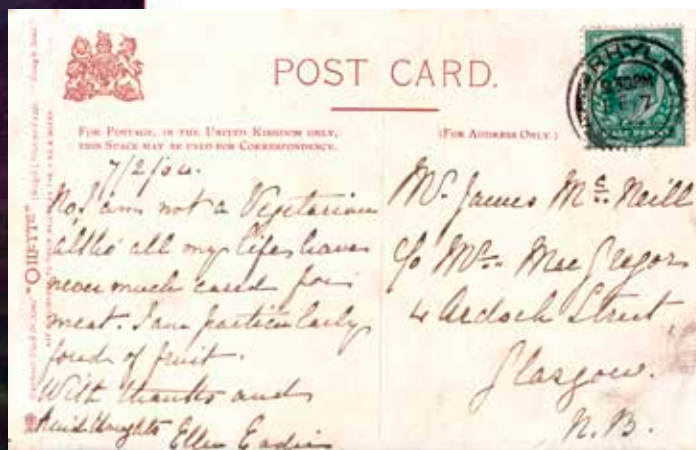 POST CARD.
FOR POSTAGE, IN THE UNITED KINGDOM ONLY,
THIS SPACE MAY BE USED FOR CORRESPONDENCE.
(FOR ADDRESS ONLY.)
RHYL
HALF PENNY
"OILETTE"
7/2/04.
No, I am not a Vegetarian
altho' all my life have
never much cared for
meat. I am particularly
fond of fruit.
With thanks and
kind thoughts Ellen
Mr. James McNeill
c/o Mrs. MacGregor
4 Ardoch Street
Glasgow.
N.B.